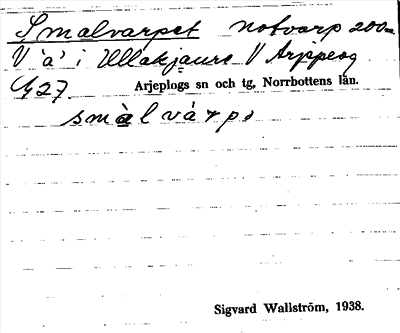 Smalvarpet notvarp 200m
V "a" i Ullakjaure V Arjeplog
427 Arjeplogs sn och tg, Norrbottens län.
smàlvárpə
Sigvard Wallström, 1938.